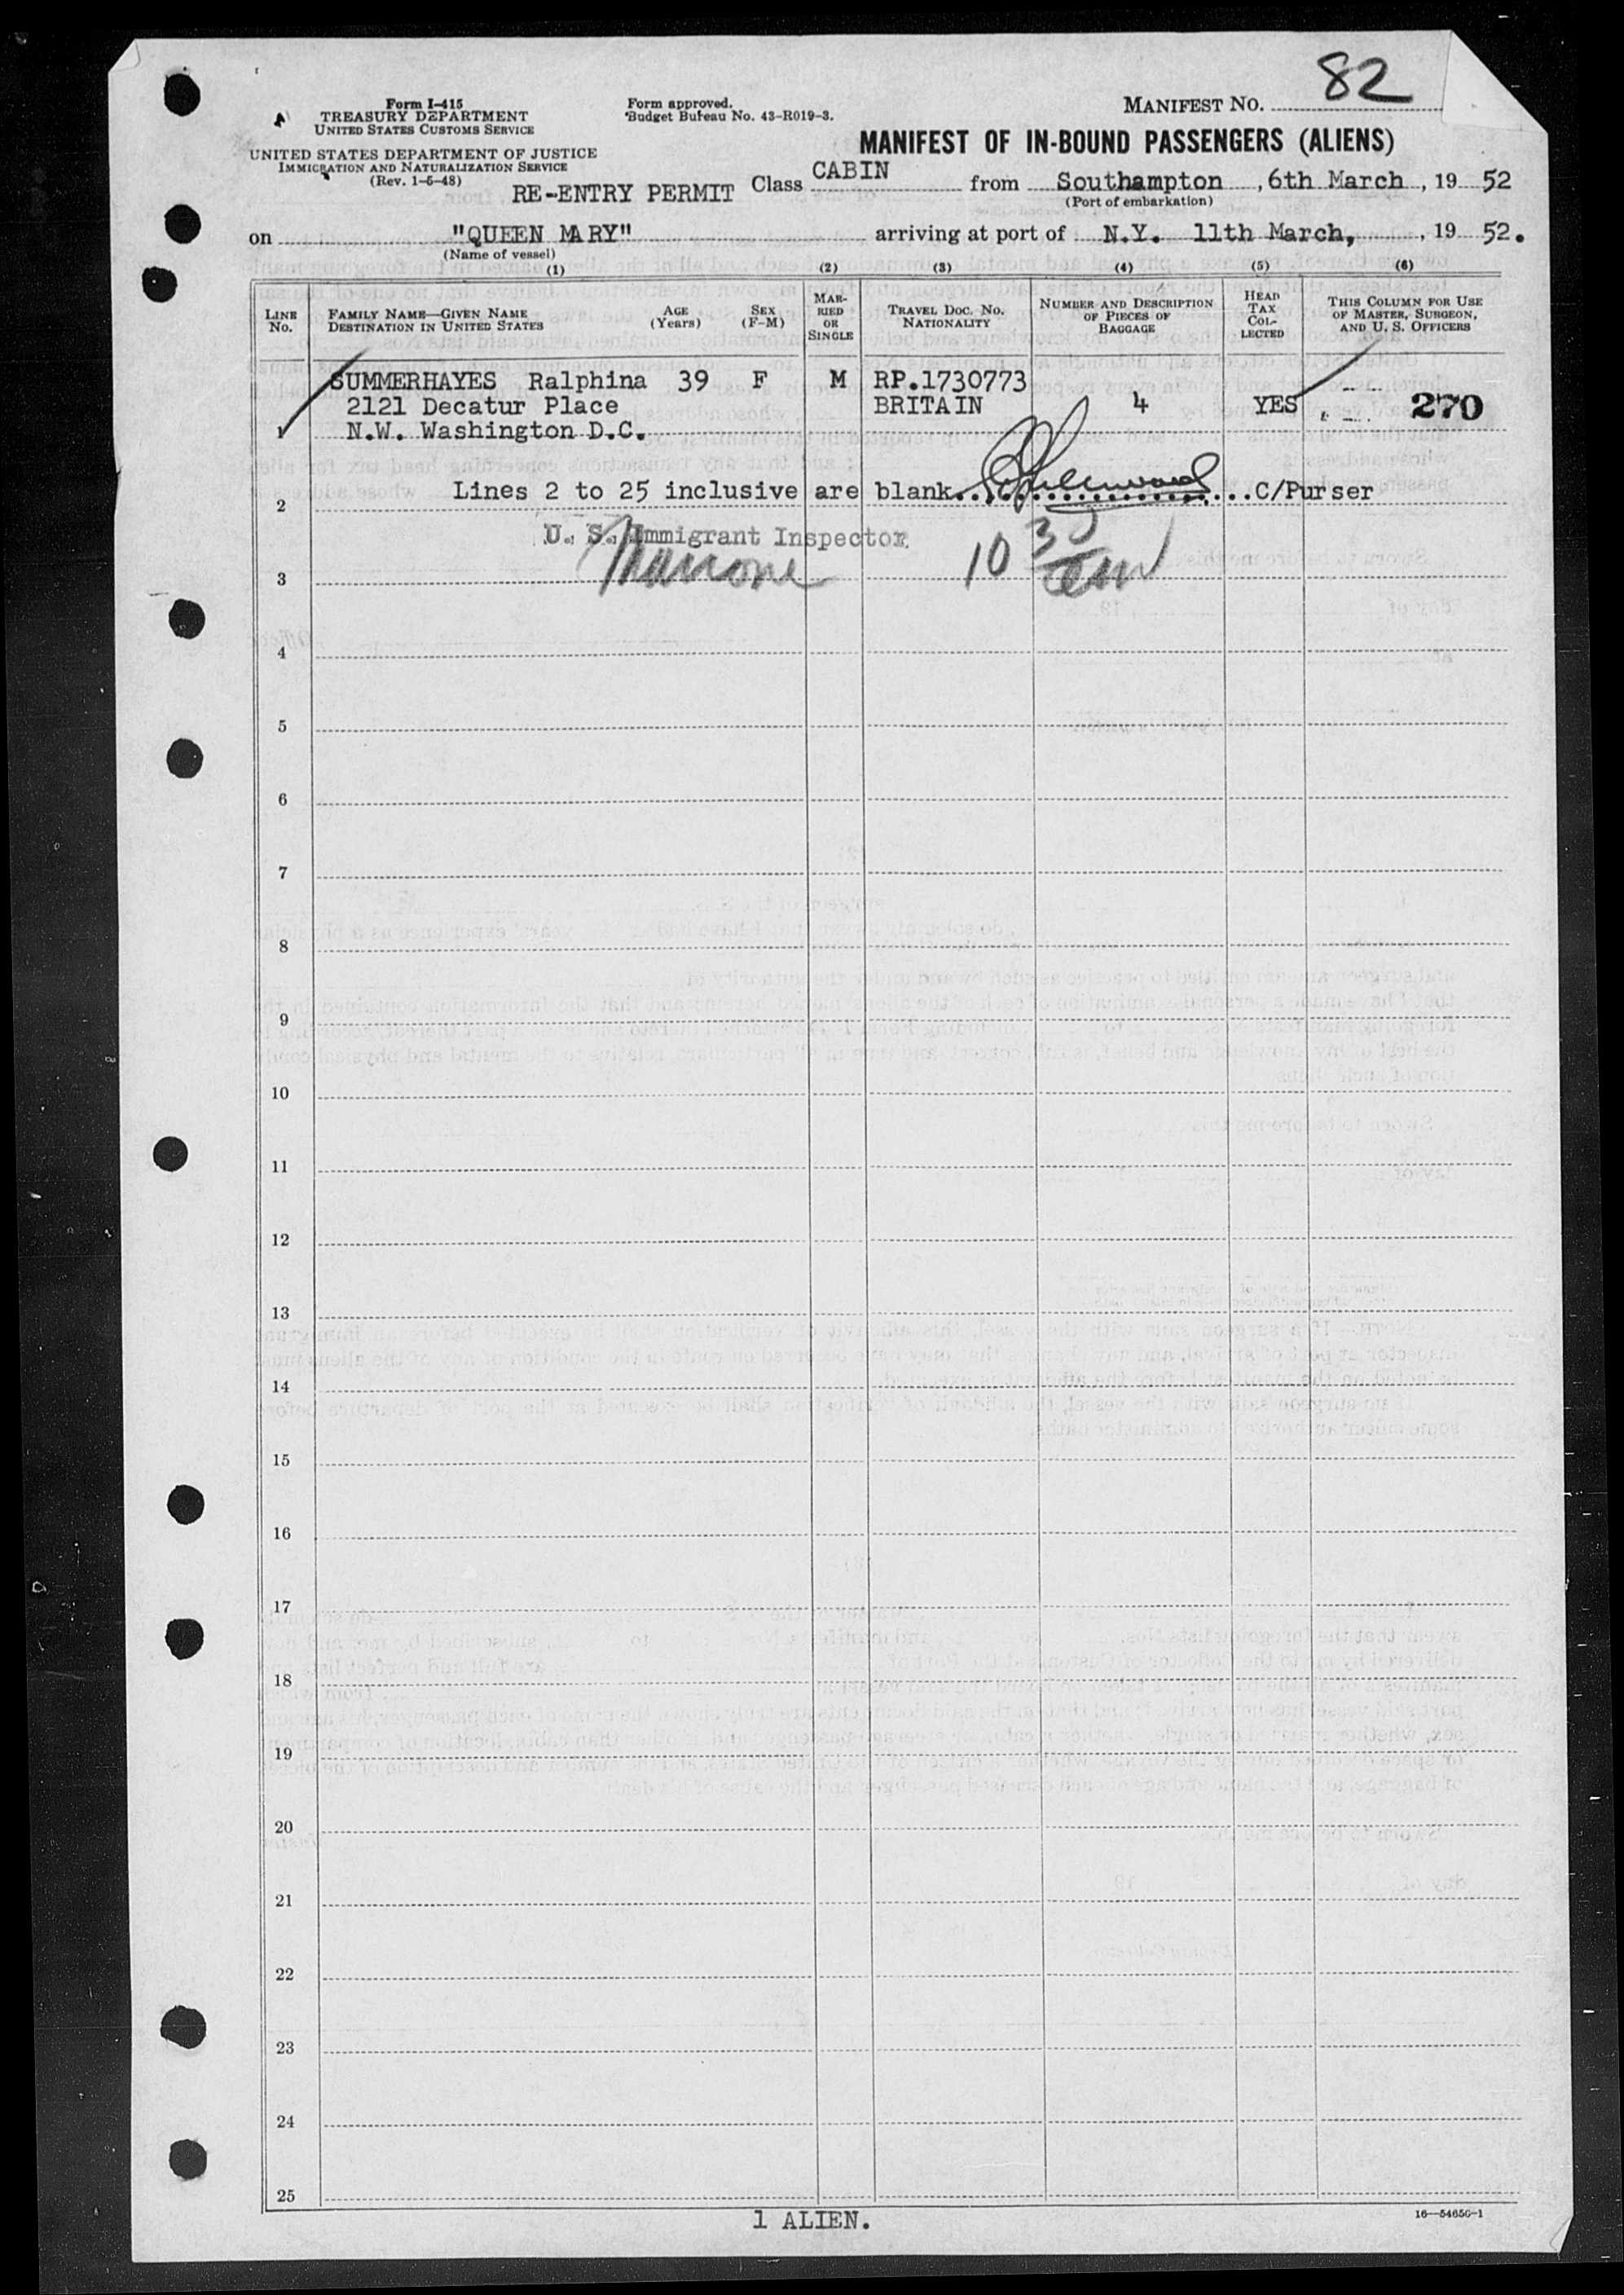 82
Form I-415
TREASURY DEPARTMENT
UNITED STATES CUSTOMS SERVICE
Form approved.
Budget Bureau No. 43-R019-3.
MANIFEST NO.
MANIFEST OF IN-BOUND PASSENGERS (ALIENS)
UNITED STATES DEPARTMENT OF JUSTICE
IMMIGRATION AND NATURALIZATION SERVICE
(Rev. 1-5-48)
RE-ENTRY PERMIT Class CABIN from Southampton, 6th March, 19 52
(Port of embarkation)
on "QUEEN MARY" arriving at port of N.Y. 11th March, , 19 52.
(Name of vessel)
(1) (2) (3) (4) (5) (6)
LINE No. FAMILY NAME—GIVEN NAME DESTINATION IN UNITED STATES AGE (Years) SEX (F-M) MARRIED OR SINGLE TRAVEL DOC. NO. NATIONALITY NUMBER AND DESCRIPTION OF PIECES OF BAGGAGE HEAD TAX COLLECTED THIS COLUMN FOR USE OF MASTER, SURGEON, AND U. S. OFFICERS
SUMMERHAYES Ralphina 39 F M RP.1730773
2121 Decatur Place BRITAIN 4 YES 270
1 N.W. Washington D.C.
2 Lines 2 to 25 inclusive are blank. C/Purser
U. S. Immigrant Inspector
10 30
3
4
5
6
7
8
9
10
11
12
13
14
15
16
17
18
19
20
21
22
23
24
25
1 ALIEN.
16—54650-1